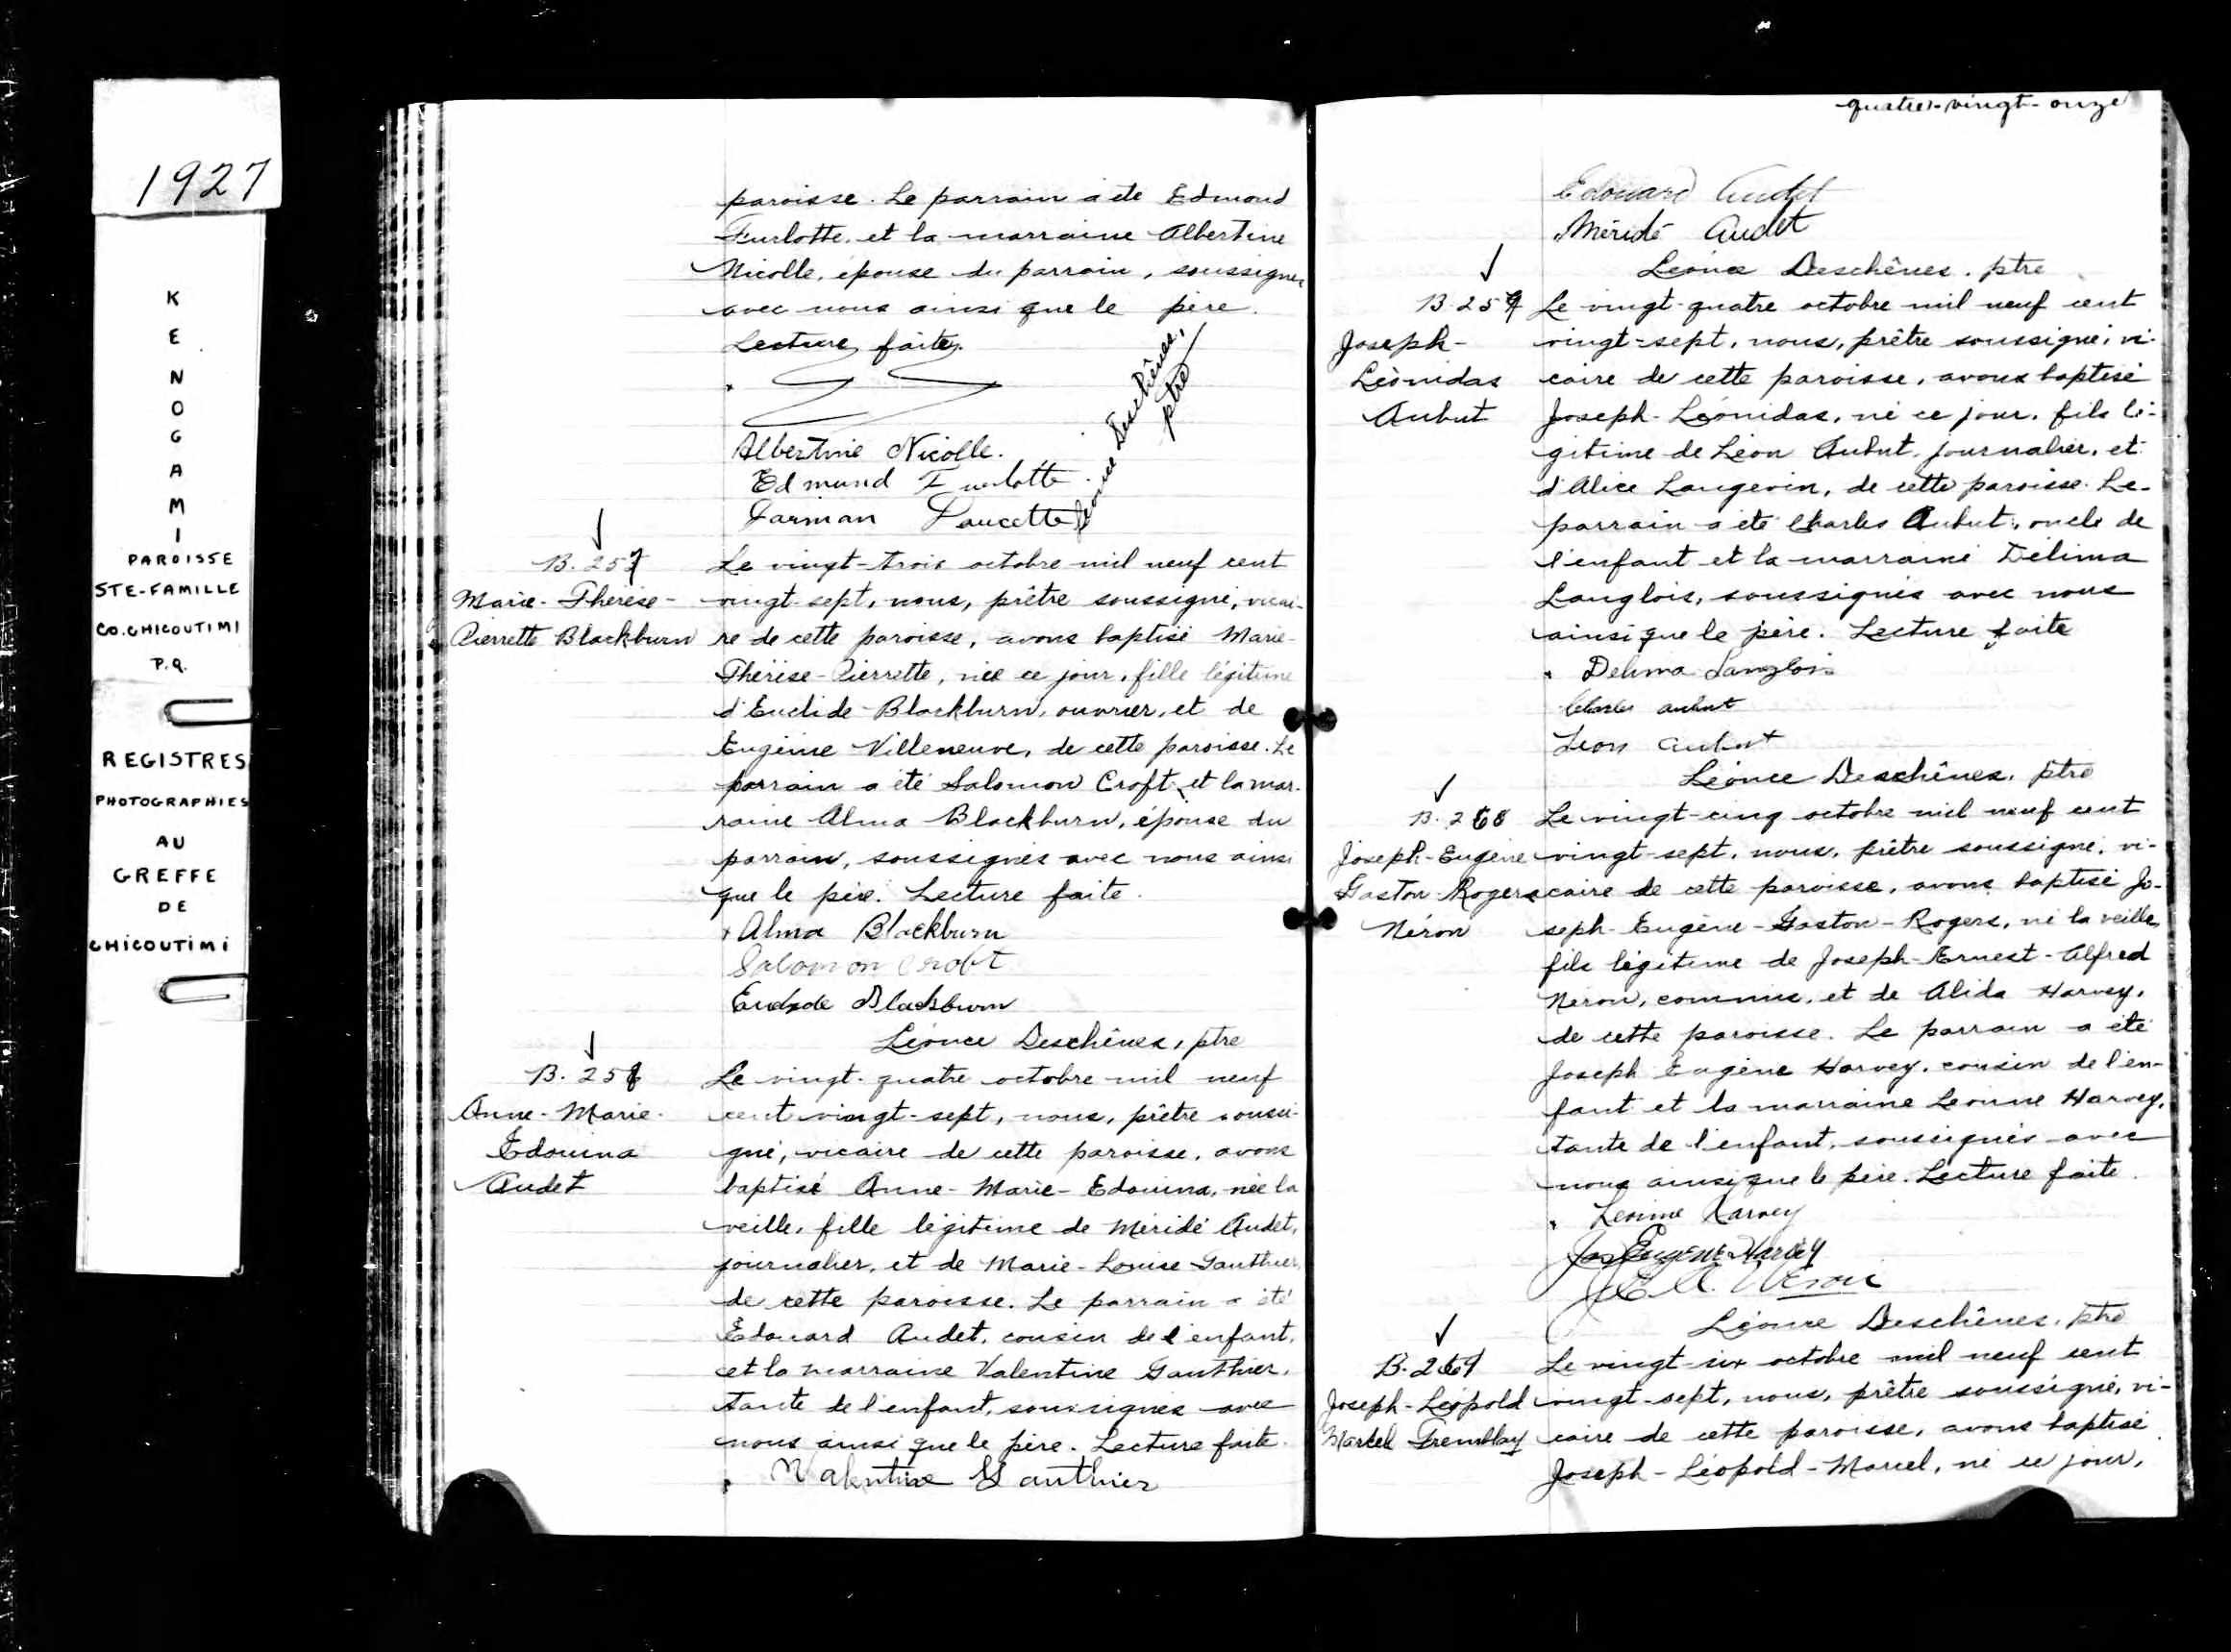 1927
K
E
N
O
G
A
M
I
PAROISSE
STE-FAMILLE
CO. CHICOUTIMI
P.Q.
REGISTRES
PHOTOGRAPHIES
AU
GREFFE
DE
CHICOUTIMI
paroisse. Le parrain a été Edmond
Furlotte, et la marraine Albertine
Nicolle, épouse du parrain, soussignés
avec nous ainsi que le père.
Lecture faite.
Albertine Nicolle.
Edmund Furlotte
Farman Doucette
Léonce Deschênes, ptre
B. 257
Marie-Thérèse-
Pierrette Blackburn
Le vingt-trois octobre mil neuf cent
vingt-sept, nous, prêtre soussigné, vicai-
re de cette paroisse, avons baptisé Marie-
Thérèse-Pierrette, née ce jour, fille légitime
d'Euclide Blackburn, ouvrier, et de
Eugénie Villeneuve, de cette paroisse. Le
parrain a été Salomon Croft, et la mar-
raine Alma Blackburn, épouse du
parrain, soussignés avec nous ainsi
que le père. Lecture faite.
Alma Blackburn
Salomon Croft
Euclide Blackburn
Léonce Deschênes, ptre
B. 258
Anne-Marie-
Edouina
Audet
Le vingt-quatre octobre mil neuf
cent vingt-sept, nous, prêtre soussi-
gné, vicaire de cette paroisse, avons
baptisé Anne-Marie-Edouina, née la
veille, fille légitime de Méridé Audet,
journalier, et de Marie-Louise Gauthier,
de cette paroisse. Le parrain a été
Edouard Audet, cousin de l'enfant,
et la marraine Valentine Gauthier,
tante de l'enfant, soussignés avec
nous ainsi que le père. Lecture faite.
Valentine Gauthier
quatre-vingt-onze
Edouard Audet
Méridé Audet
Léonce Deschênes, ptre
B. 259
Joseph-
Léonidas
Aubut
Le vingt-quatre octobre mil neuf cent
vingt-sept, nous, prêtre soussigné, vi-
caire de cette paroisse, avons baptisé
Joseph-Léonidas, né ce jour, fils lé-
gitime de Léon Aubut, journalier, et
d'Alice Langevin, de cette paroisse. Le
parrain a été Charles Aubut, oncle de
l'enfant et la marraine Délima
Langlois, soussignés avec nous
ainsi que le père. Lecture faite
Delima Langlois
Charles Aubut
Leon Aubut
Léonce Deschênes, ptre
B. 260
Joseph-Eugène
Gaston-Rogers
Néron
Le vingt-cinq octobre mil neuf cent
vingt-sept, nous, prêtre soussigné, vi-
caire de cette paroisse, avons baptisé Jo-
seph-Eugène-Gaston-Rogers, né la veille,
fils légitime de Joseph-Ernest-Alfred
Néron, commis, et de Alida Harvey,
de cette paroisse. Le parrain a été
Joseph Eugène Harvey, cousin de l'en-
fant et la marraine Léonine Harvey,
tante de l'enfant, soussignés avec
nous ainsi que le père. Lecture faite.
Léonine Harvey
Jos Eugène Harvey
J. E. A. Néron
Léonce Deschênes, ptre
B. 261
Joseph-Léopold
Marcel Tremblay
Le vingt-six octobre mil neuf cent
vingt-sept, nous, prêtre soussigné, vi-
caire de cette paroisse, avons baptisé
Joseph-Léopold-Marcel, né ce jour,